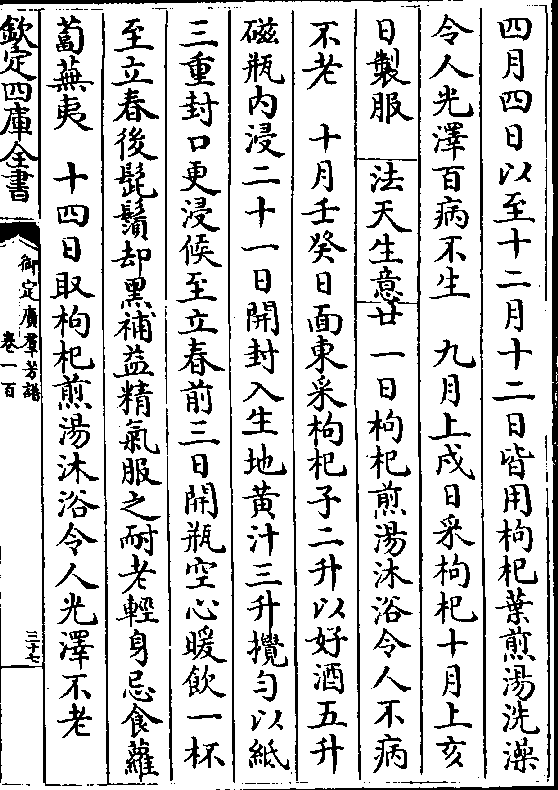 四月四日以至十二月十二日皆用枸杞葉煎湯洗澡
令人光澤百病不生　九月上戌日采枸杞十月上亥
日製服　法天生意廿一日枸杞煎湯沐浴令人不病
不老　十月壬癸日面東采枸杞子二升以好酒五升
磁瓶内浸二十一日開封入生地黃汁三升攪勻以紙
三重封口更浸候至立春前三日開瓶空心暖飲一杯
至立春後髭鬚却黑補益精氣服之耐老輕身忌食蘿
蔔蕪夷　十四日取枸杞煎湯沐浴令人光澤不老
欽定四庫全書
御定廣羣芳譜
卷一百
三十七